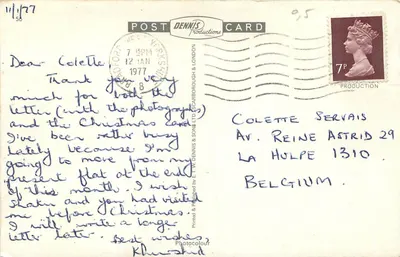 11/1/77
POST CARD
DENNIS
Productions
Dear Colette,
Thank you very
much for both the
letter (with the photographs)
and the Christmas card.
I've been rather busy
lately because I'm
going to move from my
present flat at the end
of this month. I wish
and you had visited
me before Christmas.
I will write a longer
letter later.
Best wishes,
Khurshid
7 PM
12 JAN
1977
B
7P
9,5
PRODUCTION
COLETTE SERVAIS
AV. REINE ASTRID 29
LA HULPE 1310.
BELGIUM.
Photocolour